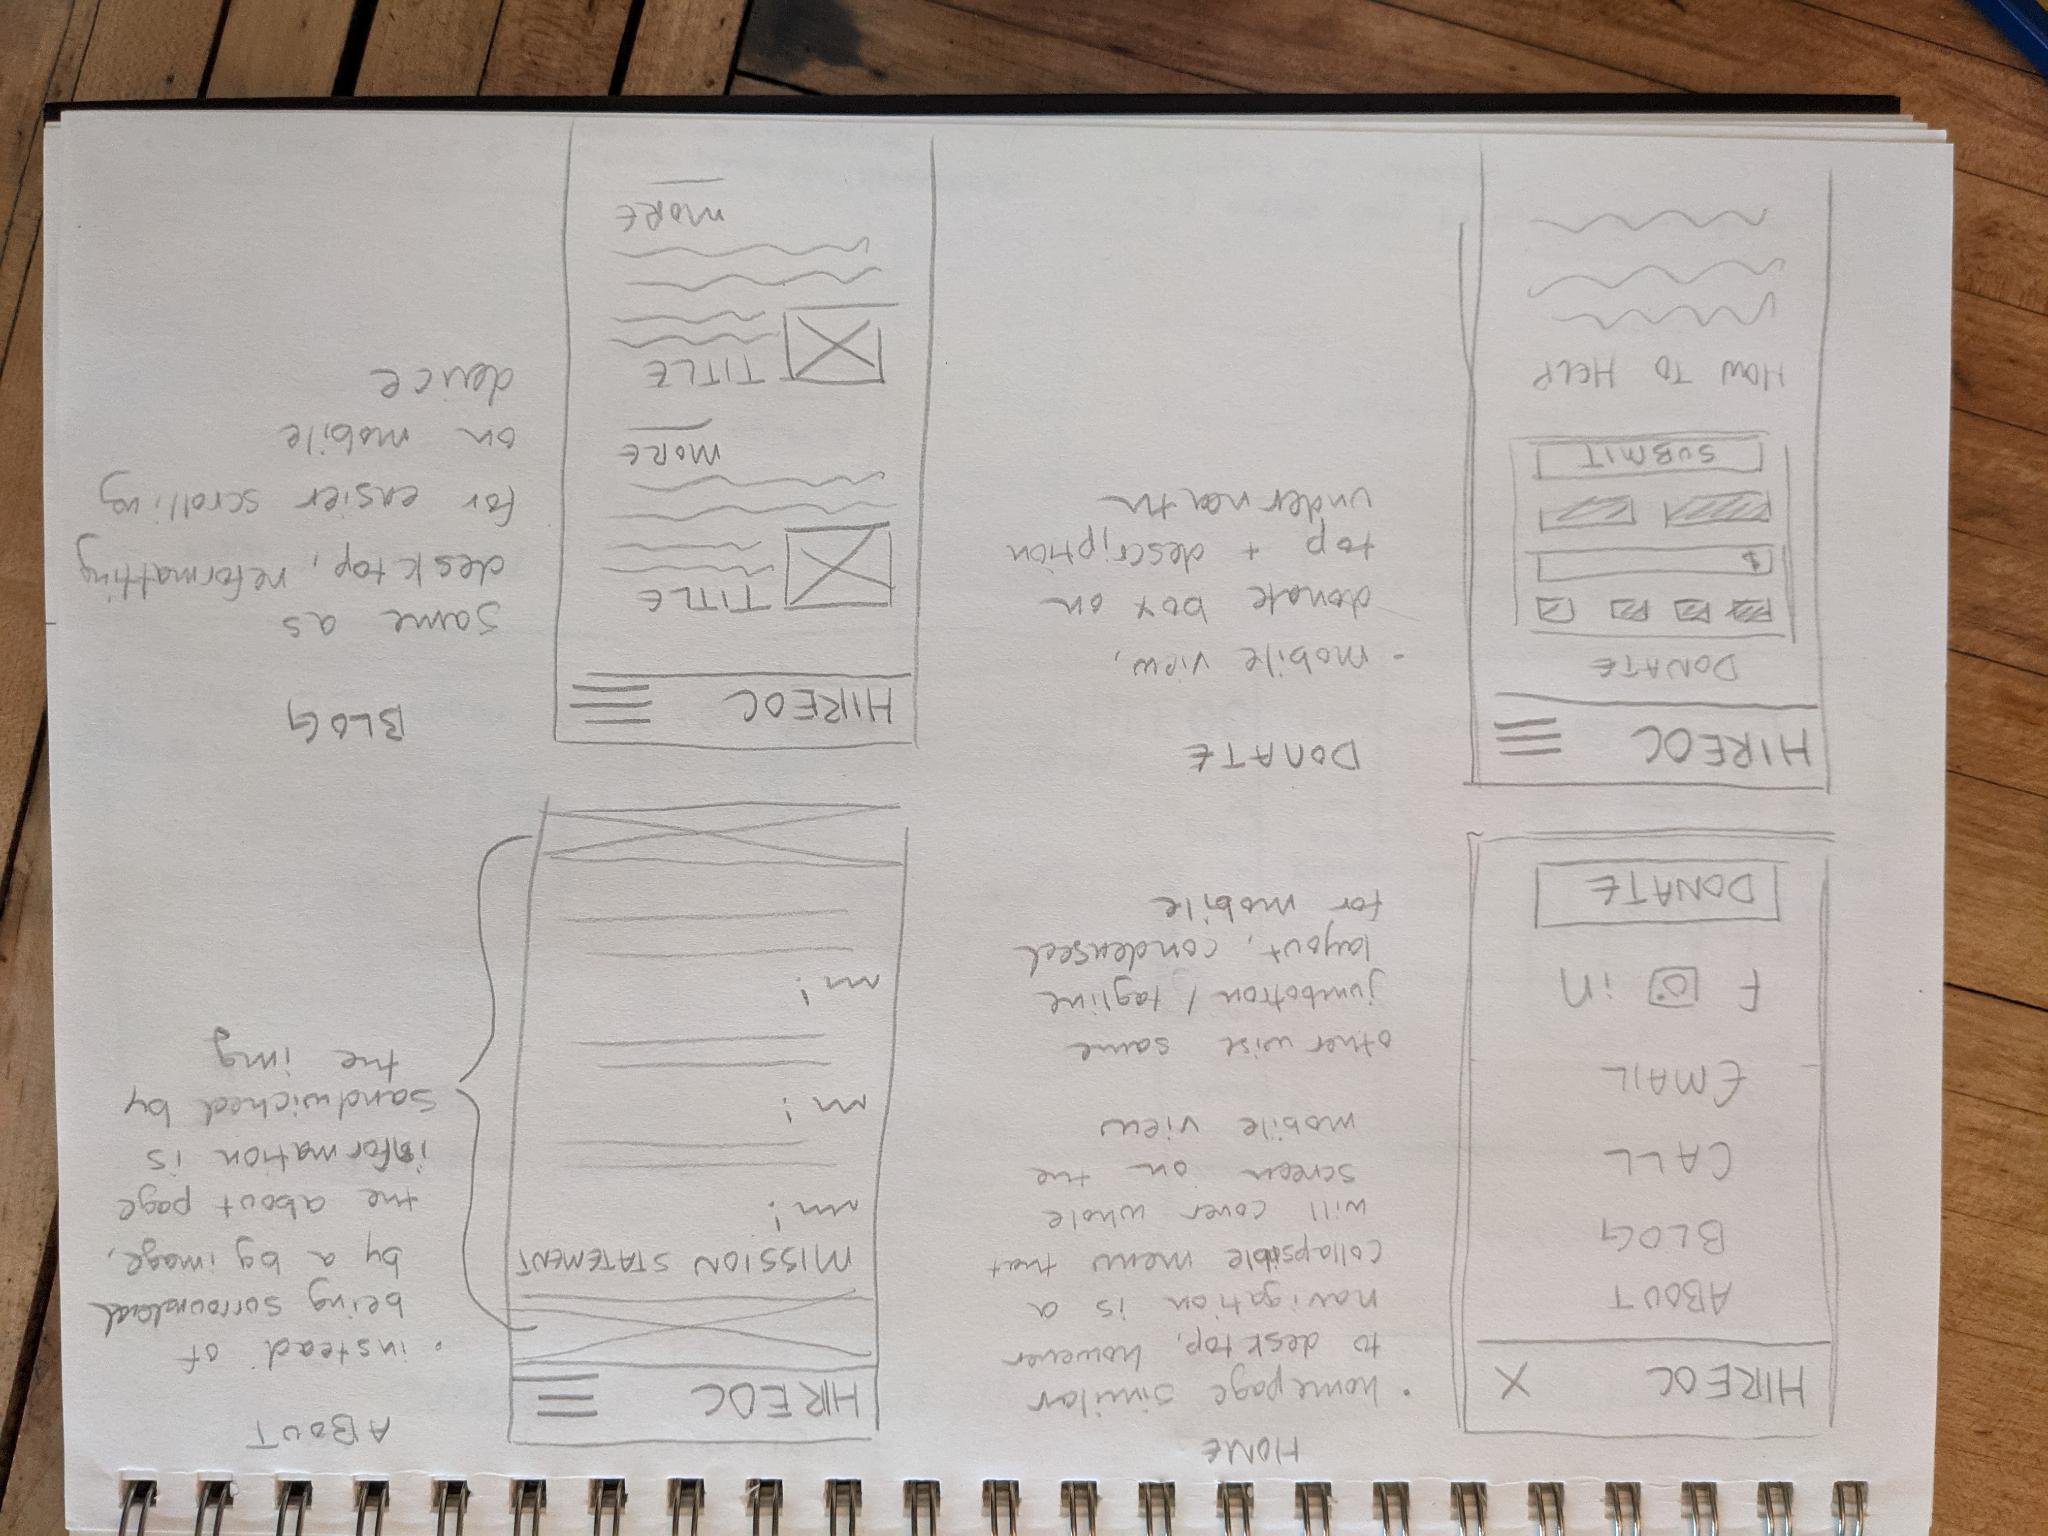 HOME
HIREOC X
ABOUT
BLOG
CALL
EMAIL
f in
DONATE
• homepage similar
to desktop, however
navigation is a
collapsible menu that
will cover whole
screen on the
mobile view
otherwise same
jumbotron / tagline
layout, condensed
for mobile
ABOUT
HIREOC
MISSION STATEMENT
!
!
!
• instead of
being surrounded
by a bg image,
the about page
information is
sandwiched by
the img
DONATE
HIREOC
DONATE
$
SUBMIT
HOW TO HELP
- mobile view,
donate box on
top + description
underneath
BLOG
HIREOC
TITLE
MORE
TITLE
MORE
same as
desktop, reformatting
for easier scrolling
on mobile
device